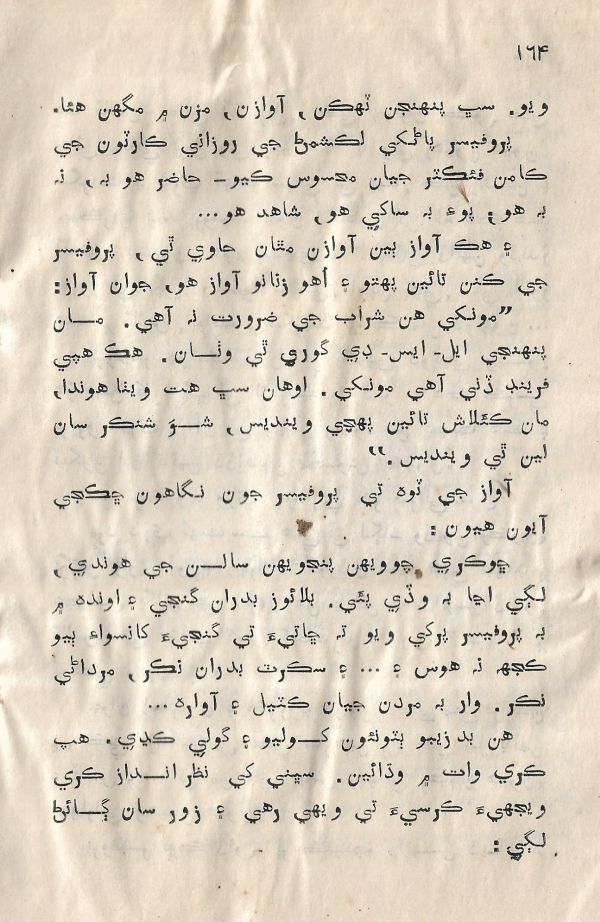 ۱۶۴
ويو. سڀ پنهنجن ٽهڪن، آوازن، مزن ۾ مگهن هئا.
پروفيسر پاڻکي لڪشمڻ جي روزاني ڪارٽون جي
ڪامن فئڪٽر جيان محسوس ڪيو- حاضر هو به، نہ
به هو؛ پوءِ به ساکي هو، شاهد هو...
۽ هڪ آواز ٻين آوازن مٿان حاوي ٿي، پروفيسر
جي ڪنن تائين پهتو ۽ اُهو زنانو آواز هو، جوان آواز:
”مونکي هن شراب جي ضرورت نہ آهي. مان
پنهنجي ايل- ايس- ڊي گوري ٿي وٺان. هڪ هپي
فرينڊ ڏني آهي مونکي. اوهان سڀ هت ويٺا هوندا،
مان ڪئلاش تائين پهچي وينديس، شِوَ شنڪر سان
لين ٿي وينديس.“
آواز جي ٽوه تي پروفيسر جون نگاهون ڇڪجي
آيون هيون:
ڇوڪري چوويهن پنجويهن سالن جي هوندي،
لڳي اڃا به وڏي پئي. بلائوز بدران گنجي ۽ اونده ۾
به پروفيسر پرکي ويو تہ ڇاتيءَ تي گنجيءَ کانسواءِ ٻيو
ڪجهہ نہ هوس ۽ ... ۽ سڪرٽ بدران نڪر، مرداڻي
نڪر. وار به مردن جيان ڪٽيل ۽ آواره...
هن بدزيبو ٻٽونئون کوليو ۽ گولي ڪڍي. هپ
ڪري وات ۾ وڌائين. سڀني کي نظر انداز ڪري
ويجهيءَ ڪرسيءَ تي ويهي رهي ۽ زور سان ڳائڻ
لڳي: